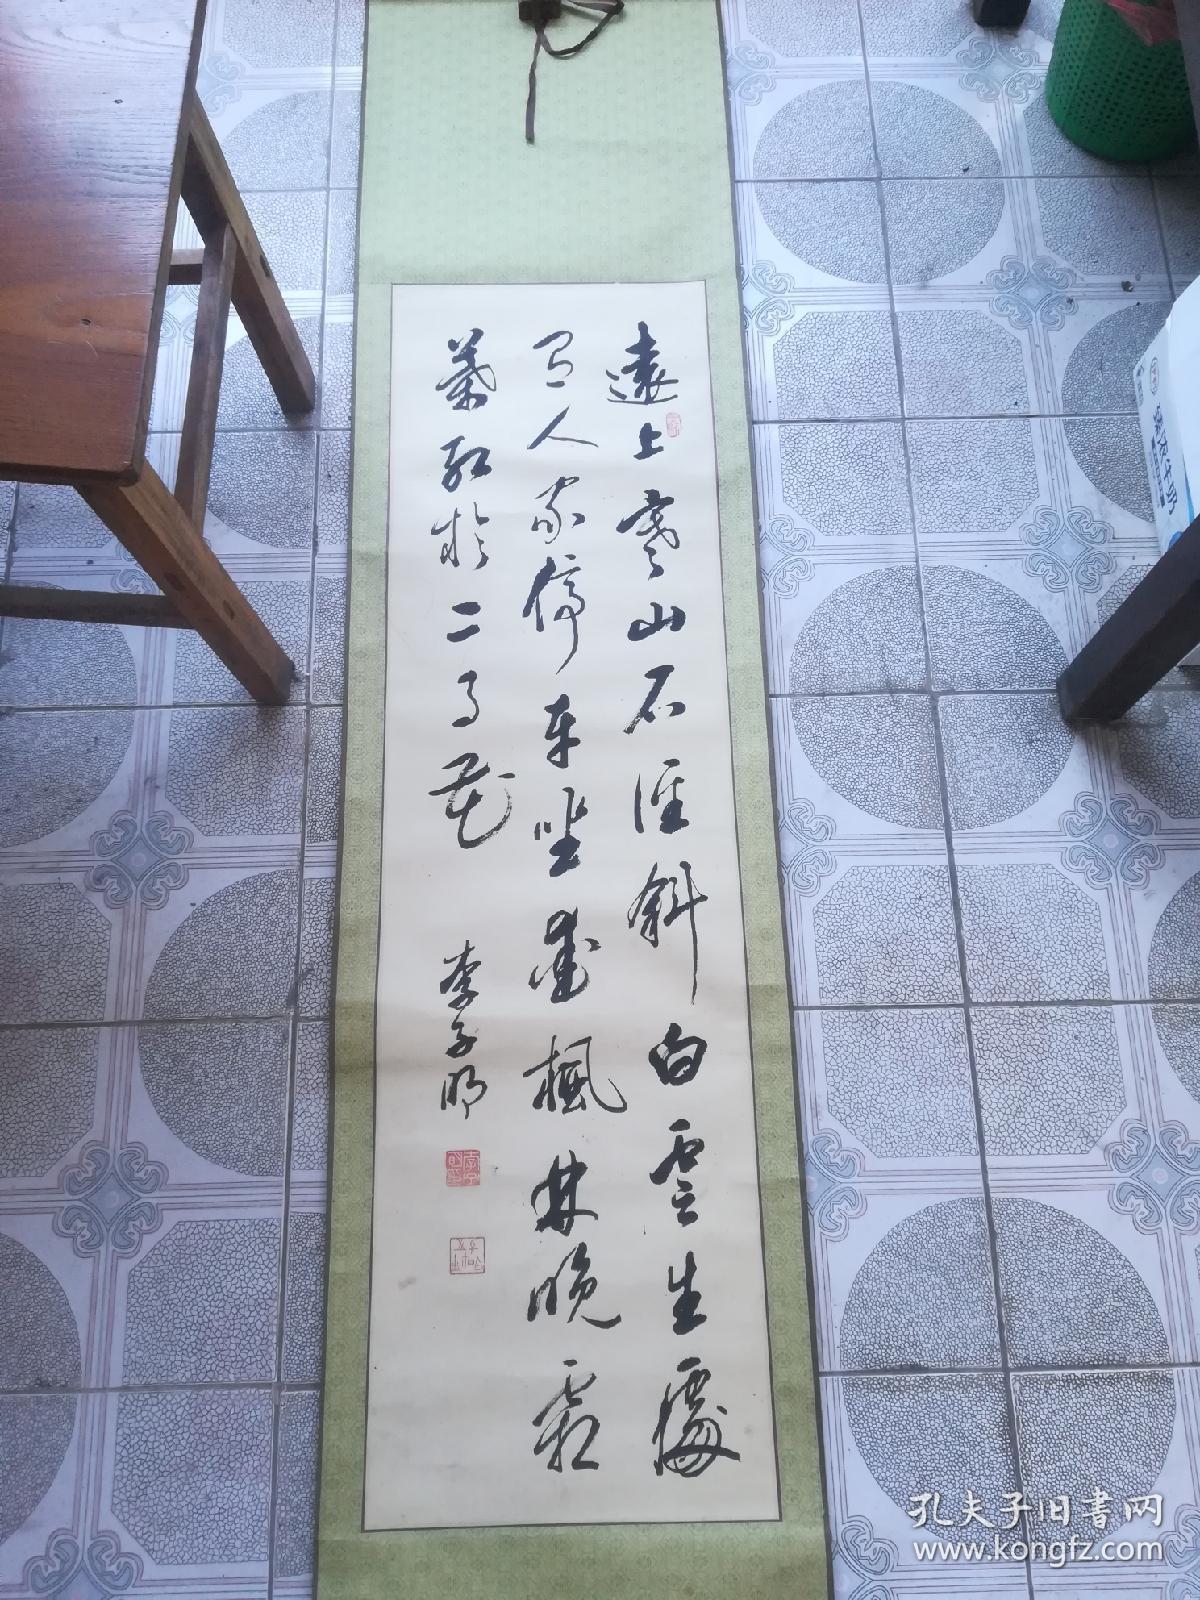 遠上寒山石徑斜白雲生處
有人家停車坐愛楓林晚霜
葉紅於二月花
李子明
孔夫子旧書网
www.kongfz.com